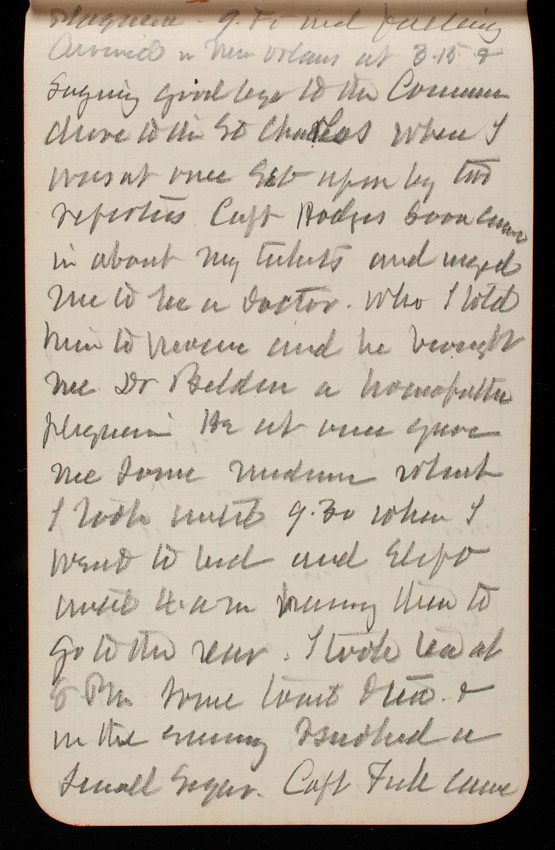 Arrived in New Orleans at 3.15 &
saying good bye to the Comm
drove to the St Charles when I
was at once set upon by two
reporters Capt Hodges soon came
in about my tickets and urged
me to see a Doctor. Who I told
him to procure and he brought
me Dr Belden a homeopathic
physician He at once gave
me some medicine which
I took until 9.30 when I
went to bed and slept
until 4 a m having then to
go to the rear. I took tea at
6 P.M. some toast & tea. &
in the evening I smoked a
small segar. Capt came